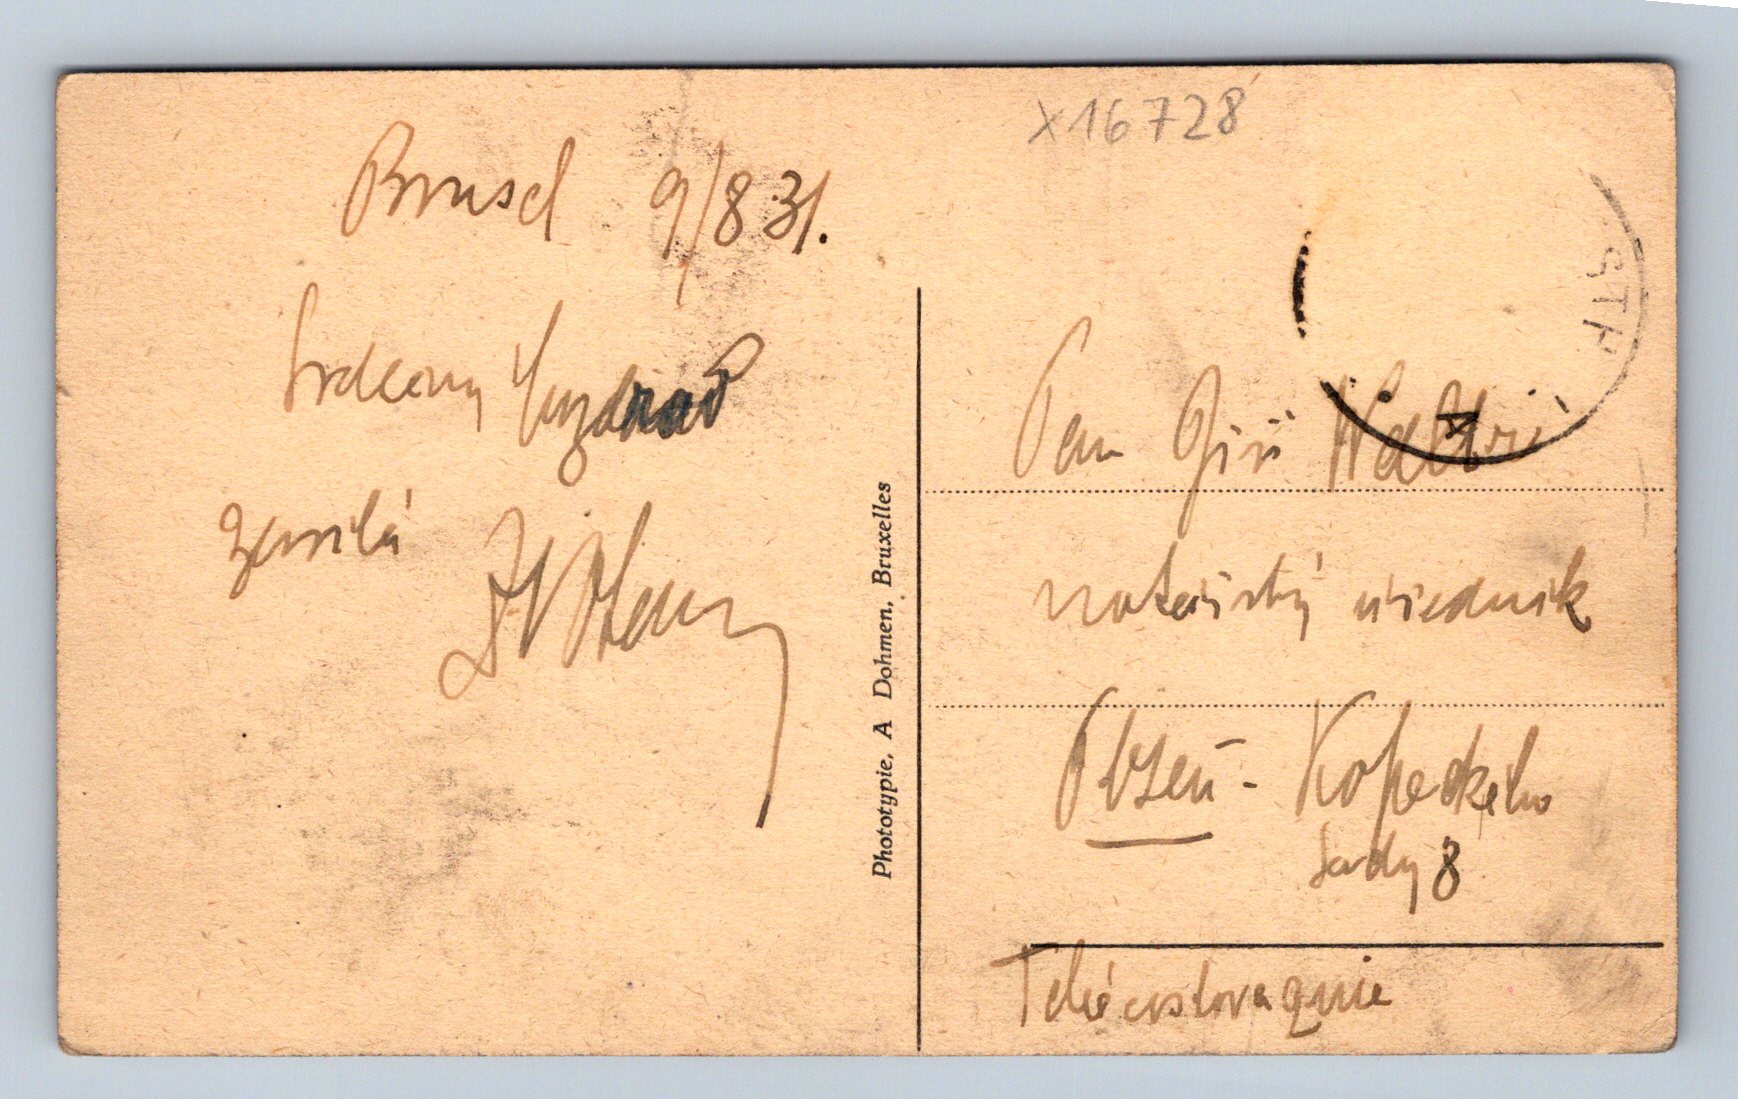 X16728
Brusel 9/8 31.
Srdečný pozdrav
zasílá
Pan Jiří
notářský úředník
Plzeň - Kopeckého
sady 8
Tchécoslovaquie
Phototypie, A Dohmen, Bruxelles